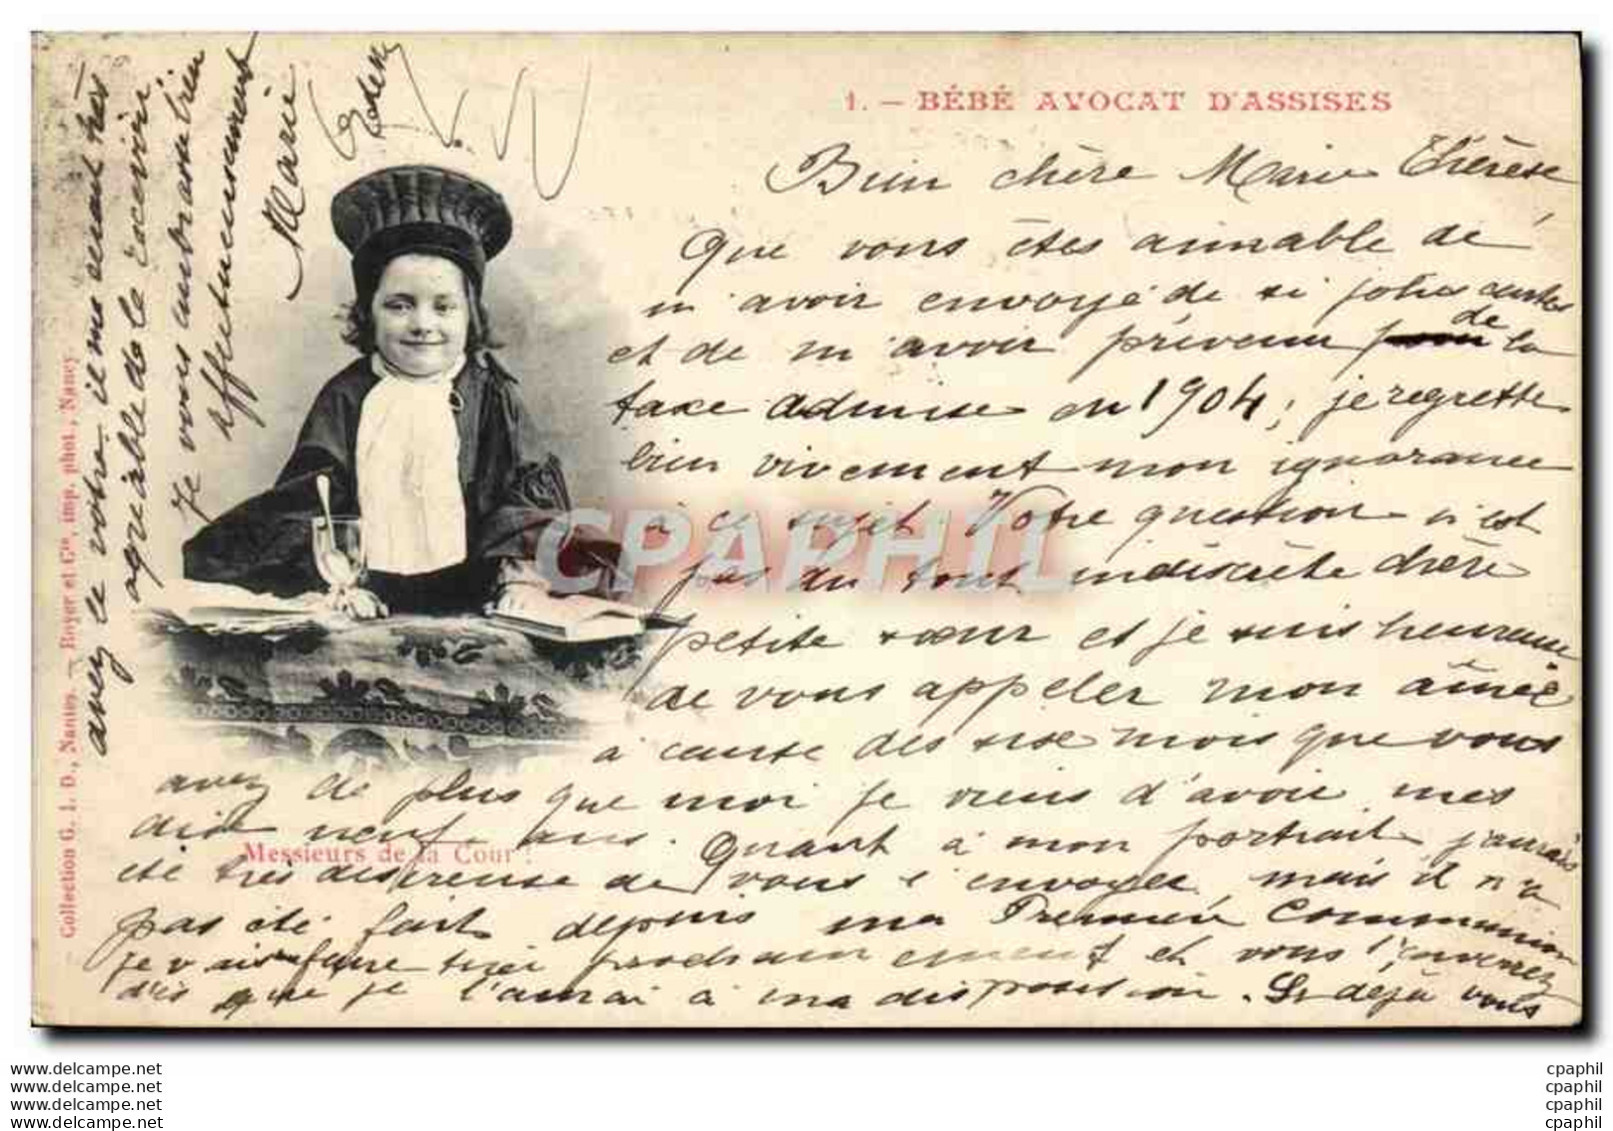 1. — BÉBÉ AVOCAT D'ASSISES
Bien chère Marie Thérèse
Que vous êtes aimable de
m'avoir envoyé de si jolies cartes
et de m'avoir prévenu de la
taxe admise en 1904; je regrette
bien vivement mon ignorance
à ce sujet. Votre question n'est
pas du tout indiscrète chère
petite sœur et je suis heureuse
de vous appeler mon aînée
à cause des six mois que vous
avez de plus que moi je viens d'avoir mes
dix neuf ans. Quant à mon portrait j'aurais
été très désireuse de vous l'envoyer mais il n'a
pas été fait depuis ma Première Communion
je vais faire tirer prochainement et vous l'enverrez
dès que je l'aurai à ma disposition. Si déjà vous
avez le votre il me serait très
agréable de le recevoir
Je vous embrasse bien
affectueusement
Marie
Messieurs de la Cour !
Collection G. I. D., Nancy. — Royer et Cie, imp. phot., Nancy
CPAPHIL
www.delcampe.net
www.delcampe.net
www.delcampe.net
www.delcampe.net
cpaphil
cpaphil
cpaphil
cpaphil